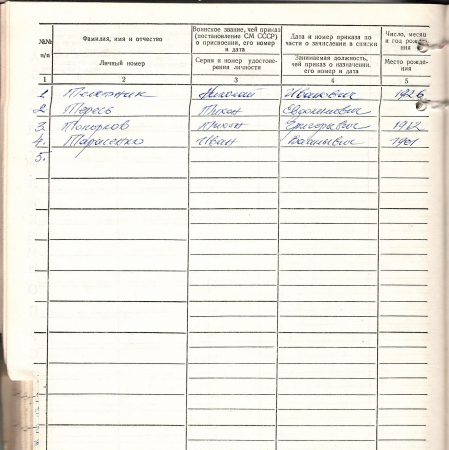 №№ п/п
Фамилия, имя и отчество
Личный номер
Воинское звание, чей приказ
(постановление СМ СССР)
о присвоении, его номер
и дата
Серия и номер удостове-
рения личности
Дата и номер приказа по
части о зачислении в списки
Занимаемая должность,
чей приказ о назначении,
его номер и дата
Число, месяц
и год рожде-
ния
Место рожде-
ния
1 2 3 4 5
1. Иванович 1926
2. Тересь Тихон
3. Топорков Тихон Григорьевич 1912
4. Тарасенко Иван Васильевич 1901
5.